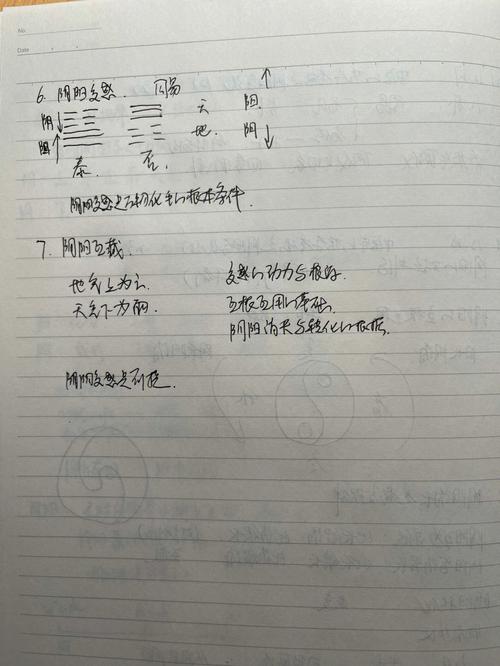 No.
Date
6. 阴阳交感. 周易
阴 天 阳
阳 地. 阴
泰. 否.
阴阳交感是万物化生的根本条件.
7. 阴阳互藏.
地气上为云. 交感的动力与根源.
天气下为雨. 互根互用的基础.
阴阳消长与转化的依据.
阴阳交感是前提.